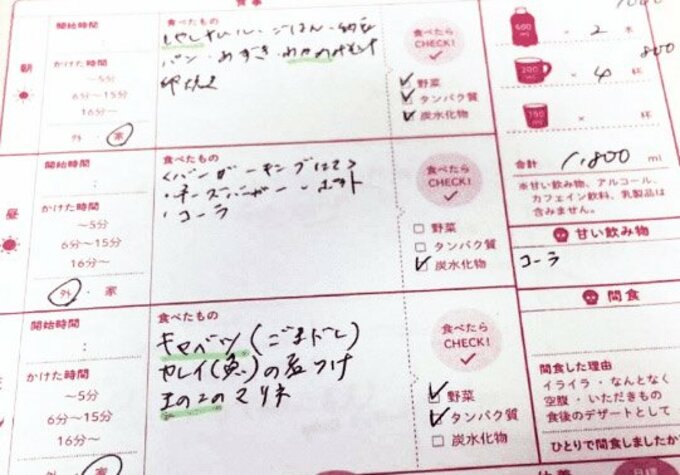 食事
開始時間
:
朝
かけた時間
～5分
6分～15分
16分～
外・家
食べたもの
ごはん・納豆
パン・
卵焼き
食べたらCHECK!
野菜
タンパク質
炭水化物
600 ml
× 2 本
200 ml
800
× 4 杯
190 ml
× 杯
合計 1,800 ml
※甘い飲み物、アルコール、
カフェイン飲料、乳製品は
含みません。
開始時間
:
昼
かけた時間
～5分
6分～15分
16分～
外・家
食べたもの
<バーガーキングにて>
・チーズバーガー
・コーラ
食べたら
CHECK!
野菜
タンパク質
炭水化物
甘い飲み物
コーラ
開始時間
:
かけた時間
～5分
6分～15分
16分～
食べたもの
キャベツ(ごまドレ)
カレイ(魚)の煮つけ
きのこのマリネ
食べたら
CHECK!
野菜
タンパク質
炭水化物
間食
間食した理由
イライラ・なんとなく
空腹・いただきもの
食後のデザートとして
ひとりで間食しましたか